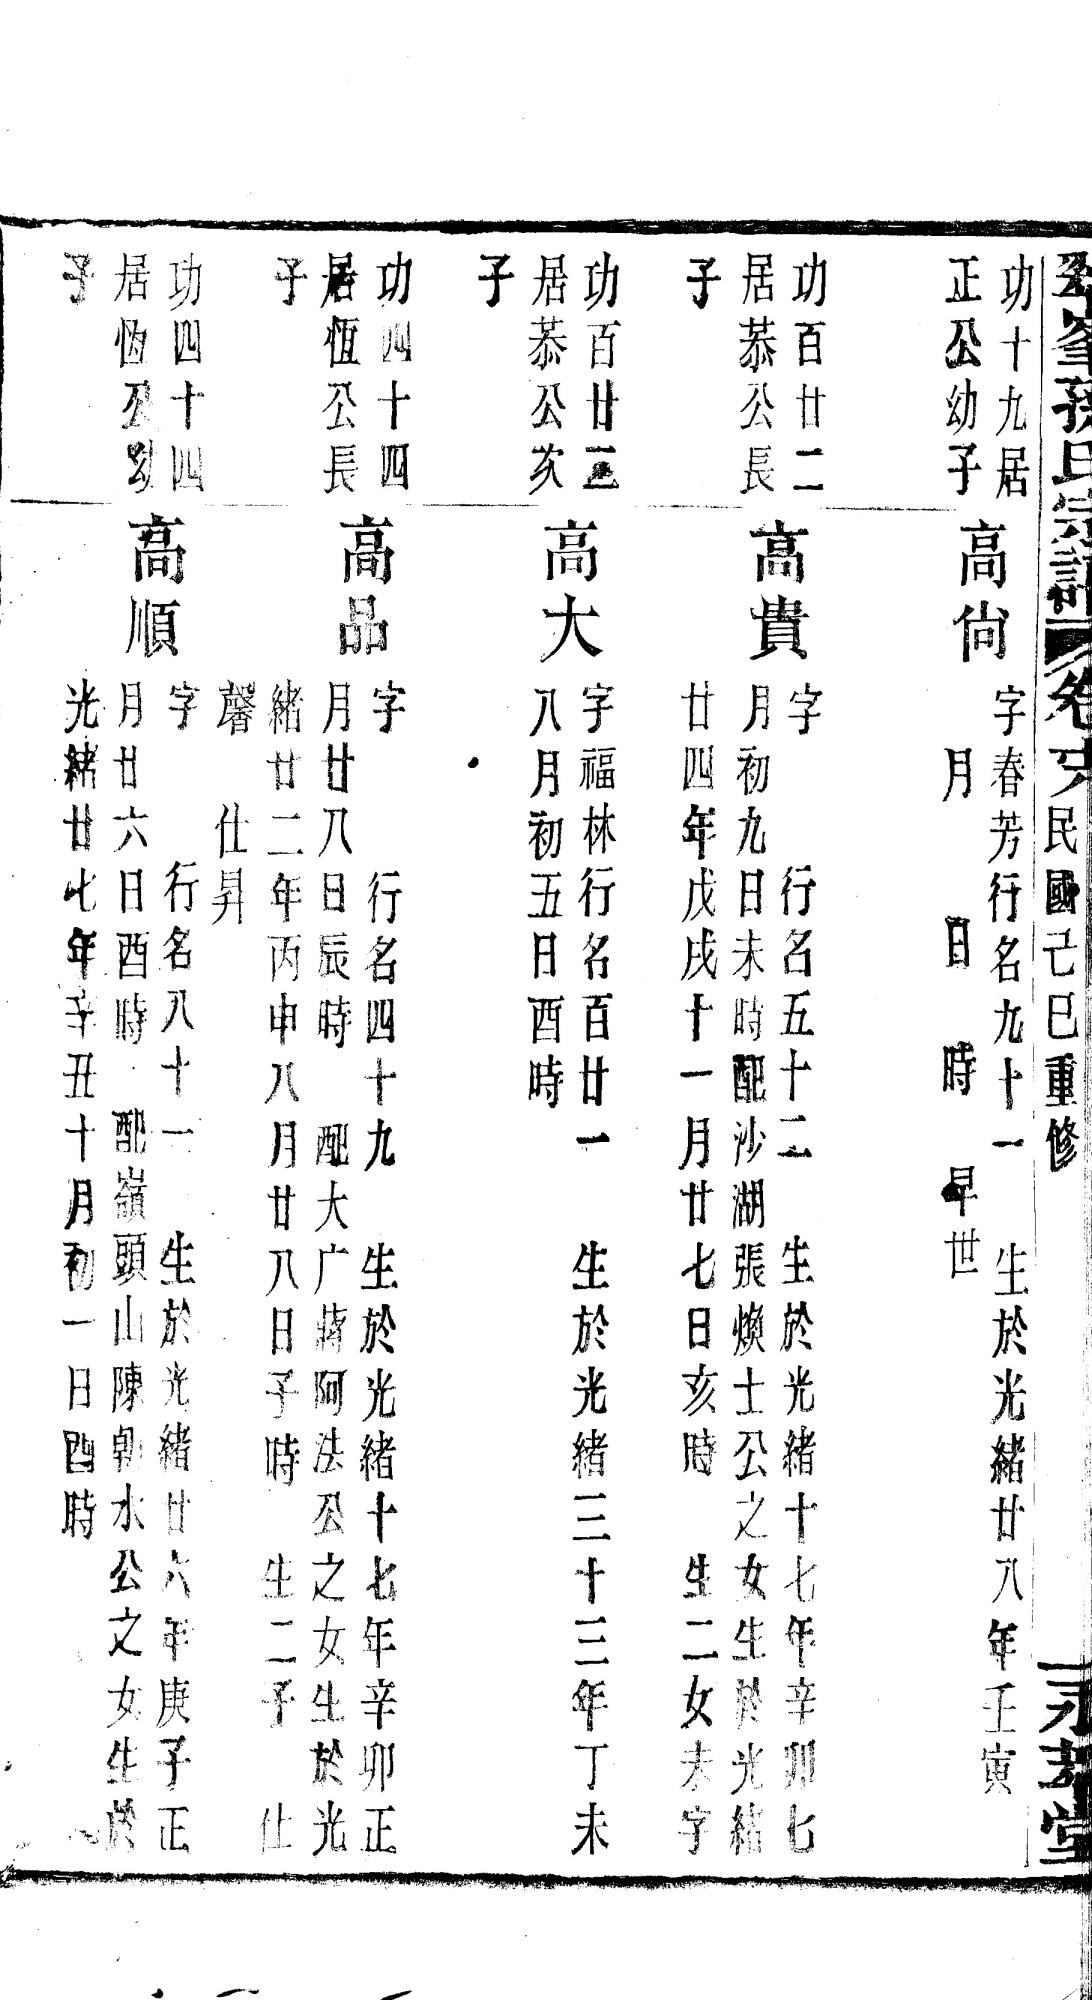 峯孫氏宗譜 卷 民國己巳重修 永 堂
功十九居
正公幼子
高尙
字春芳行名九十一 生於光緒廿八年壬寅
月 日 時 早世
功百廿二
居恭公長
子
高貴
字 行名五十二 生於光緒十七年辛卯七
月初九日未時配沙湖張煥士公之女生於光緒
廿四年戊戌十一月廿七日亥時 生二女未字
功百廿二
居恭公次
子
高大
字福林行名百廿一 生於光緒三十三年丁未
八月初五日酉時
功四十四
居恆公長
子
高品
字 行名四十九 生於光緒十七年辛卯正
月廿八日辰時 配大广蔣阿法公之女生於光
緒廿二年丙申八月廿八日子時 生二子 仕
馨 仕昇
功四十四
居恆公幼
子
高順
字 行名八十一 生於光緒廿六年庚子正
月廿六日酉時 配嶺頭山陳朝水公之女生於
光緒廿七年辛丑十月初一日酉時